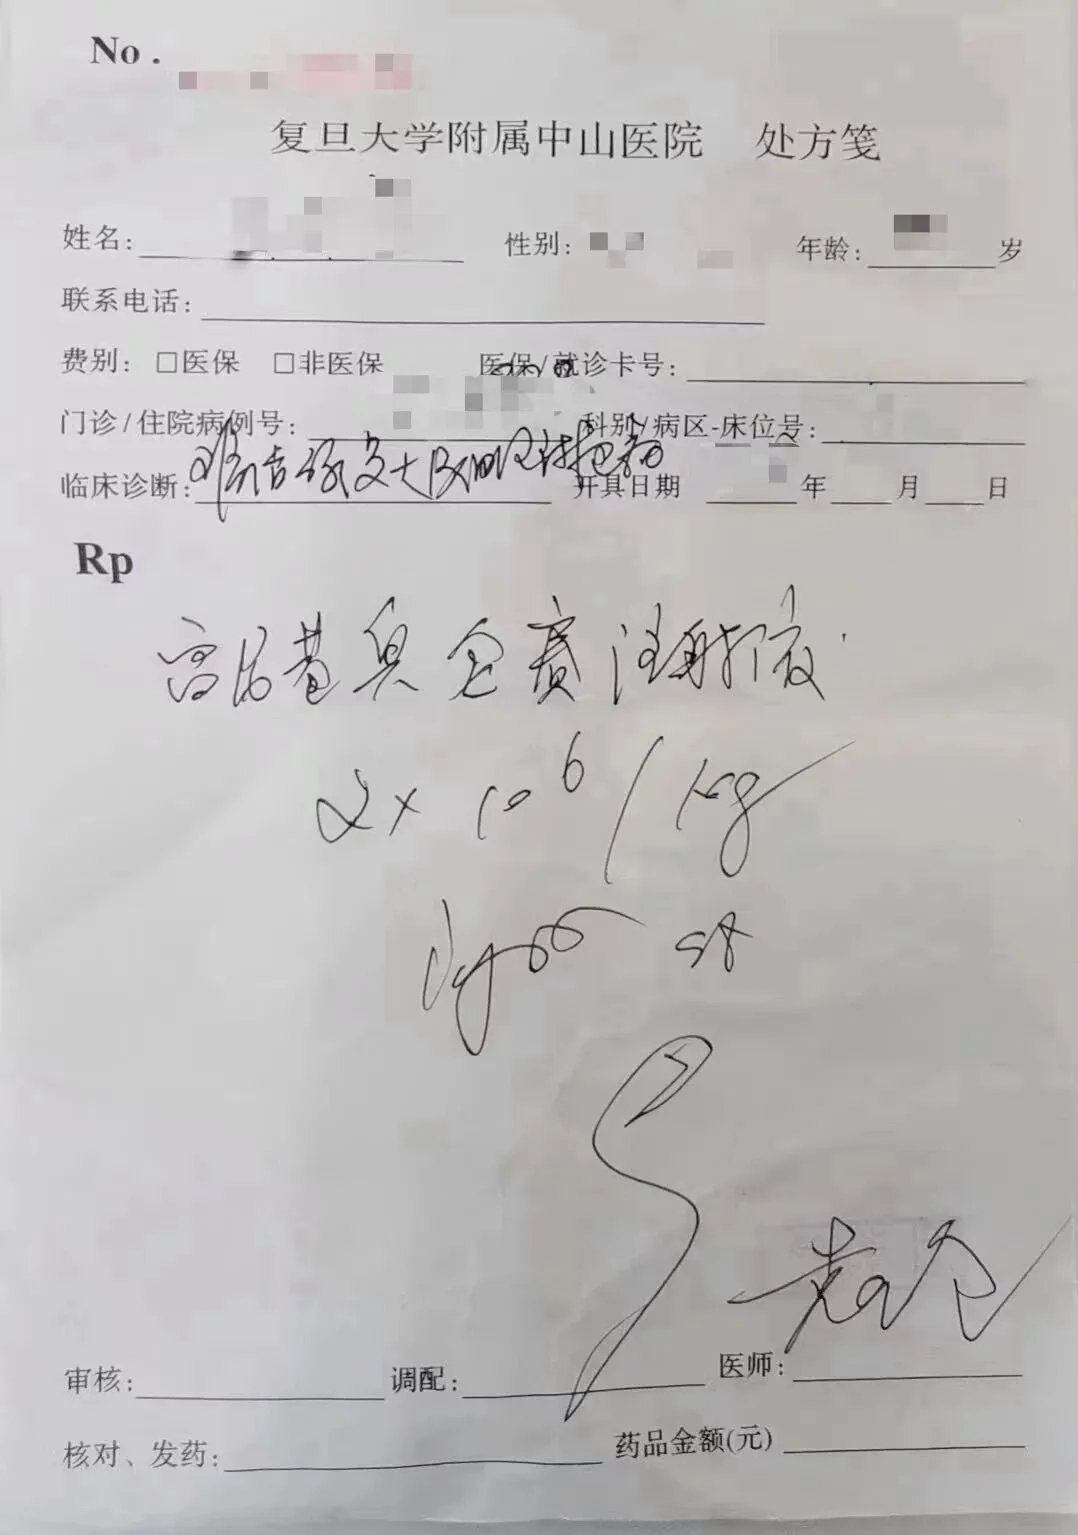 No.
复旦大学附属中山医院 处方笺
姓名: 性别: 年龄: 岁
联系电话:
费别: □医保 □非医保 医保/就诊卡号:
门诊/住院病例号: 科别/病区-床位号:
临床诊断: 大B细胞淋巴瘤 开具日期 年 月 日
Rp
奥仑赛注射液
2×10⁶/kg
st
医师:
审核: 调配:
核对、发药: 药品金额(元)